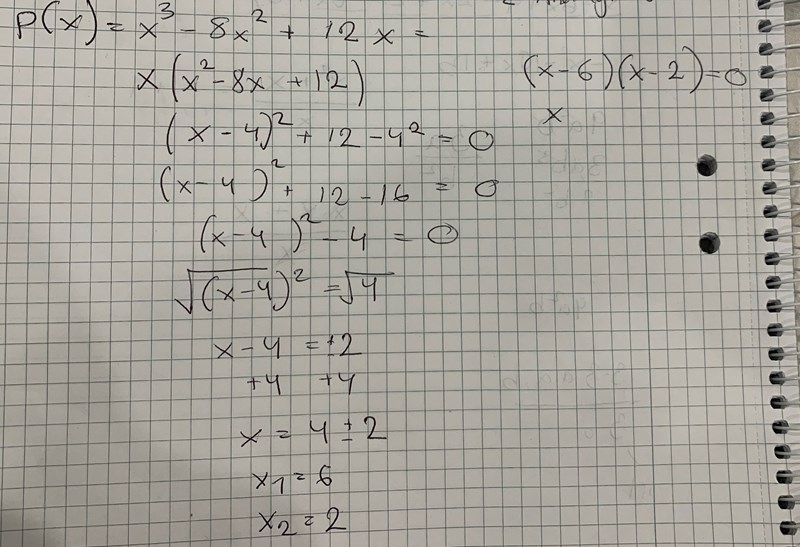 P(x) = x³ - 8x² + 12x =
x(x² - 8x + 12)
(x - 6)(x - 2) = 0
x
(x - 4)² + 12 - 4² = 0
(x - 4)² + 12 - 16 = 0
(x - 4)² - 4 = 0
√(x - 4)² = √4
x - 4 = ±2
+4 +4
x = 4 ± 2
x₁ = 6
x₂ = 2